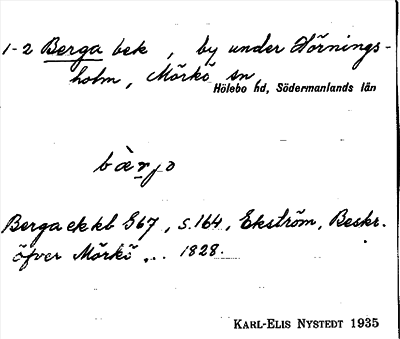 1-2 Berga bek , by under Hörnings-
holm, Mörkö sn
Hölebo hd, Södermanlands län
bàrjo
Berga ek kb G67, s. 164, Ekström, Beskr.
öfver Mörkö ... 1828.
KARL-ELIS NYSTEDT 1935